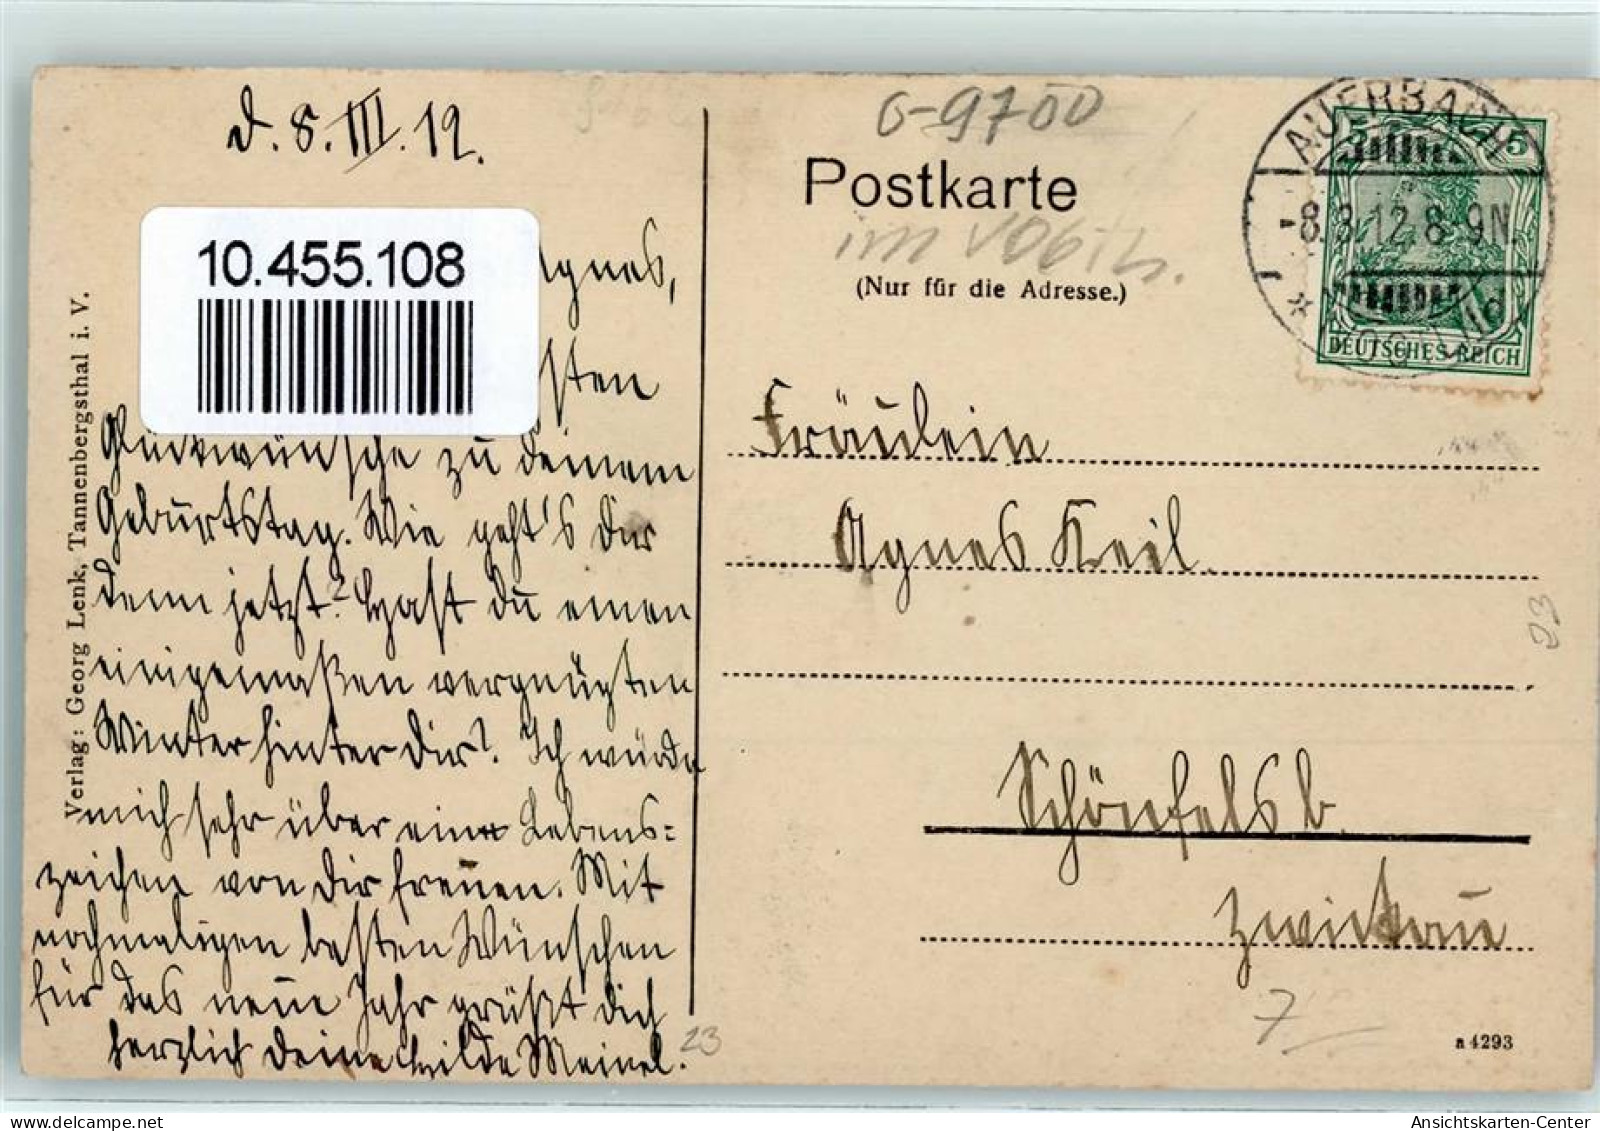 d. 8. III. 12.
10.455.108
Agnes,
sten
Glückwünsche zu Deinem
Geburtstag. Wie geht's Dir
denn jetzt? Hast Du einen
einigermaßen vergnügten
Winter hinter Dir? Ich würde
mich sehr über ein Lebens=
zeichen von Dir freuen. Mit
nochmaligen besten Wünschen
für das neue Jahr grüßt Dich
herzlich Deine Hilde Meinel.
23
Verlag: Georg Lenk, Tannenbergsthal i. V.
6-9700
Postkarte
im Vogtl.
(Nur für die Adresse.)
AUERBACH
-8.3.12.8-9N.
5 5
DEUTSCHES REICH
Fräulein
Agnes Keil.
23
Schönfels b.
Zwickau
7
a 4293
delcampe.net
Ansichtskarten-Center